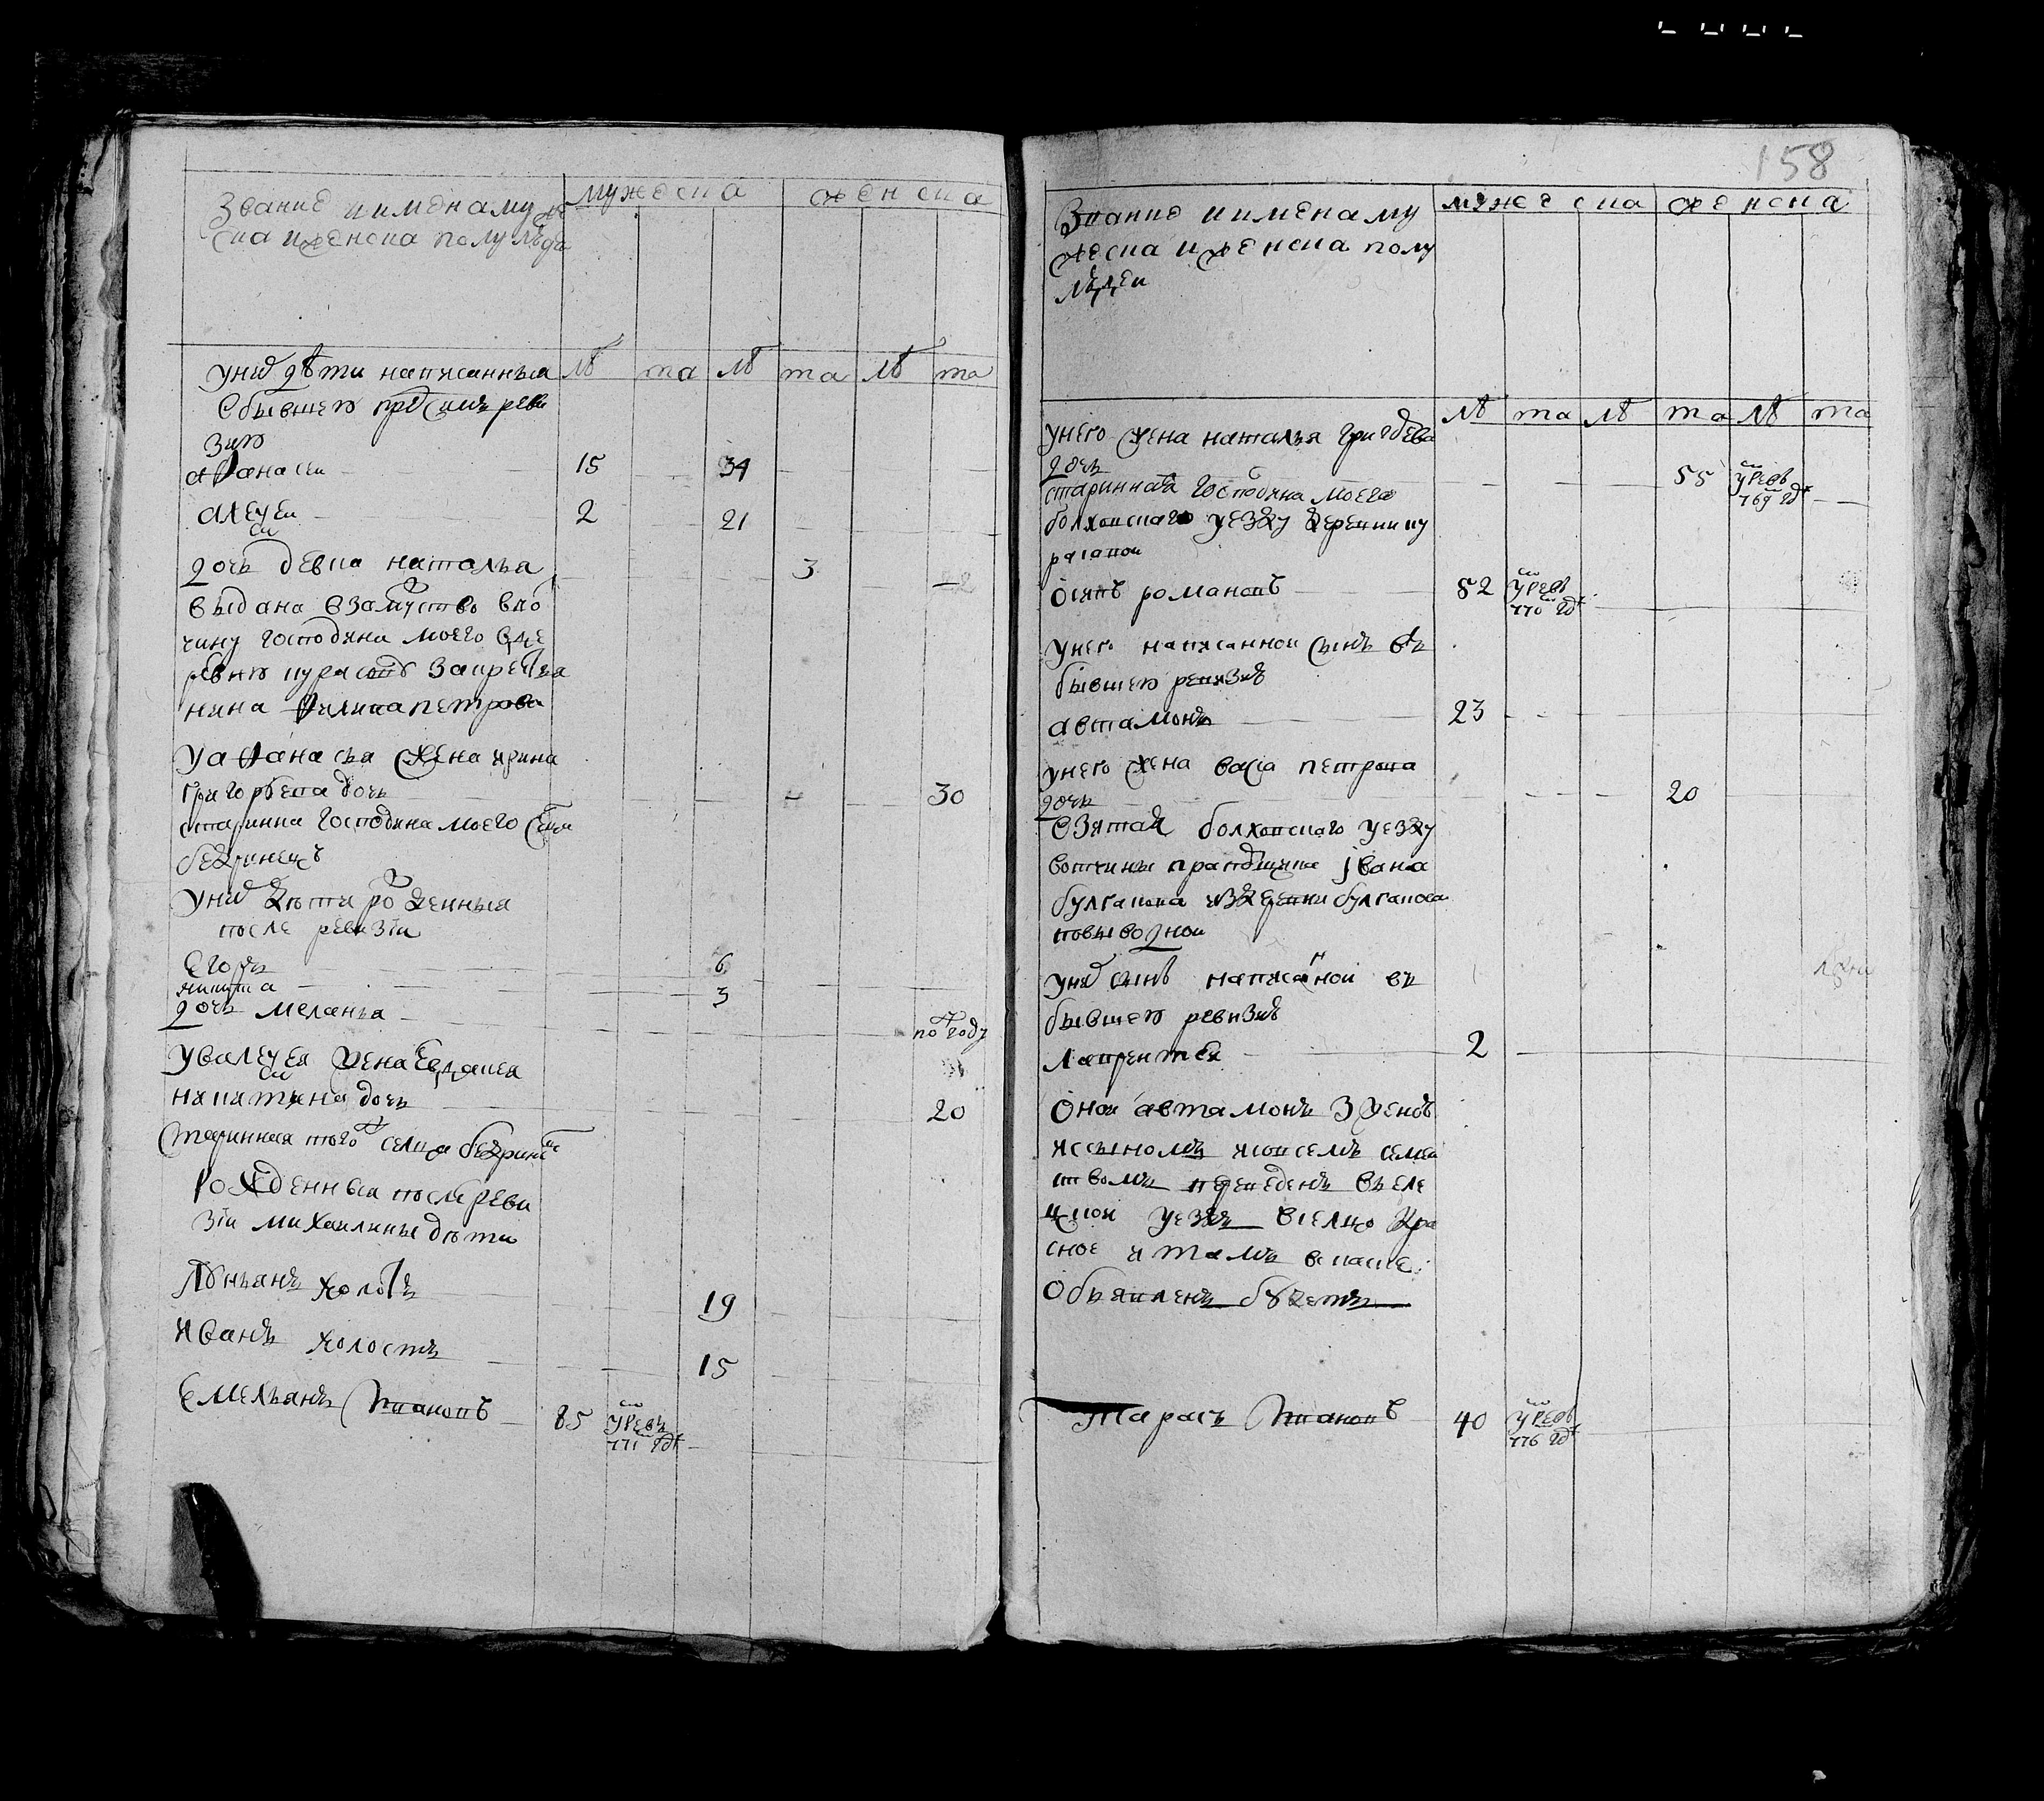 Звание и имена муже
ска и женска полу людѣ
мужеска
женска
лѣ та лѣ та лѣ та
у них дѣти написанныя
в бывшею пред сим реви
зию
афанасеи 15 34
алексеи 2 21
дочь девка наталья 3
выдана взамуство в во
чину господина моего в де
ревню за крестья
нина филипа петрова
у афанасья жена ирина
григорьева дочь 30
старинна господина моего селца
бедринец
у них дети рожденныя
после ревизіи
Егоръ 6
никита 3
дочь меланья по годъ
у алексея жена Евдокея
никитина дочь 20
старинная того ж селца бедринец
Рожденныя после реви
зіи михаилины дети
лукьянъ холостъ 19
иванъ холостъ 15
емельянъ ивановъ 85 умре въ
771 годѣ
158
Звание и имена му
жеска и женска полу
людеи
мужеска
женска
лѣ та лѣ та лѣ та
у него жена наталья григорева
дочь 55 умре въ
769 годѣ
старинная господина моего
болховскаго уезду деревни ку
расавои
осипъ романовъ 82 умре въ
770 годѣ
у него написаннои сынъ въ
бывшею ревизию
автамонъ 23
у него жена васса петрова
дочь 20
взятая болховскаго уезду
вотчины прапорщика івана
булгакова из деревни булгакова
по выводнои
у них сынъ написаннои въ
бывшею ревизию
лаврентеи 2
Онои автамонъ з женою
и с сыномъ и со всемъ семеи
ствомъ переведенъ в еле
цкои уездъ в селцо кра
сное и тамъ в скаске
Объявленъ будетъ
Тарасъ ивановъ 40 умре въ
776 годѣ